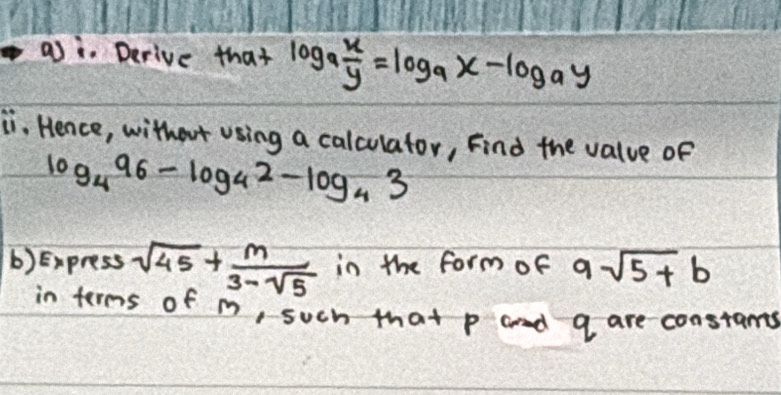 a) i. Derive that logₐ x/y = logₐ x - logₐ y
ii. Hence, without using a calculator, Find the value of
log₄ 96 - log₄ 2 - log₄ 3
b) Express √45 + m/(3-√5) in the form of a√5 + b
in terms of m, such that p and q are constants